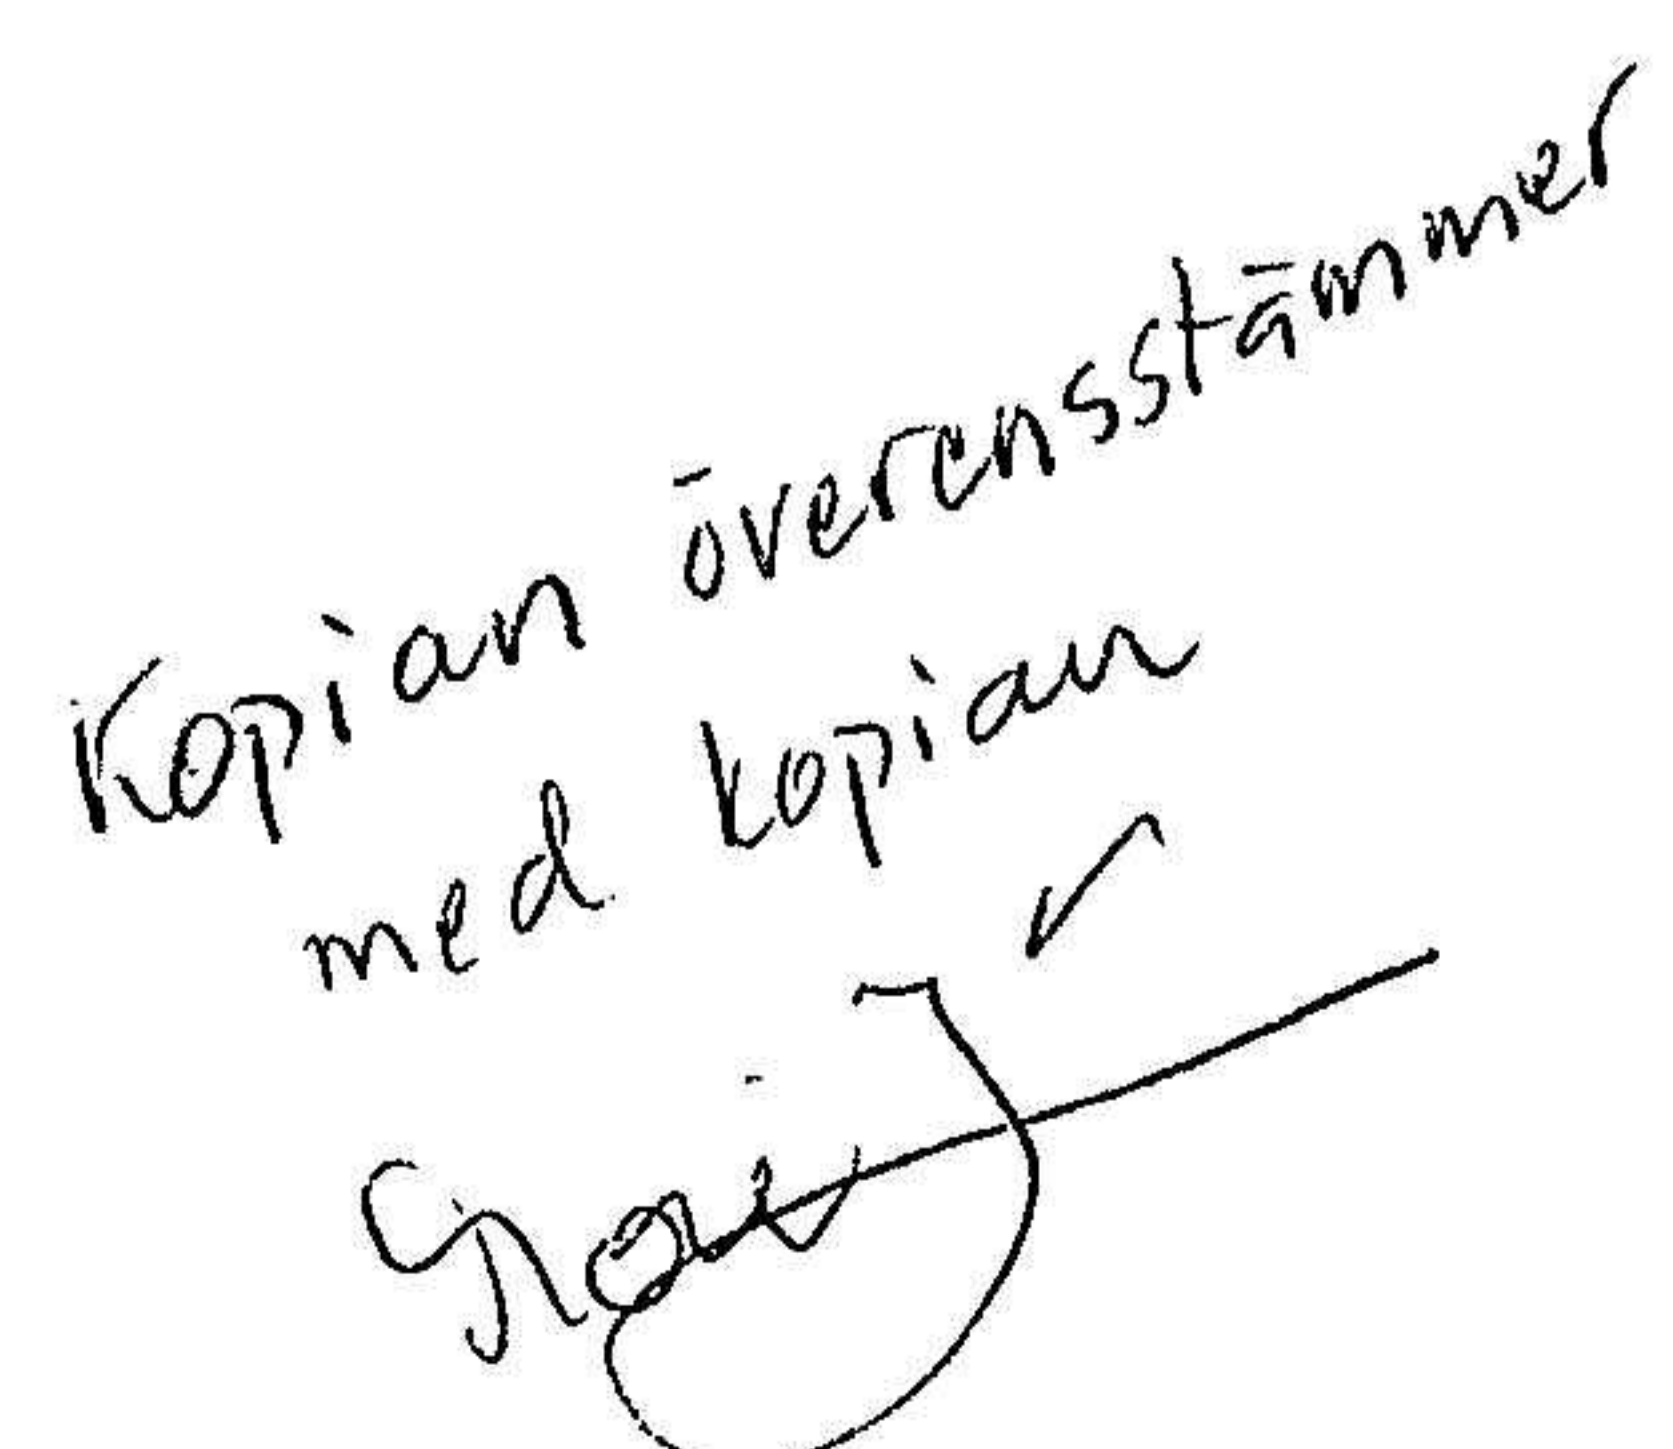 Kopian överensstämmer
med kopian